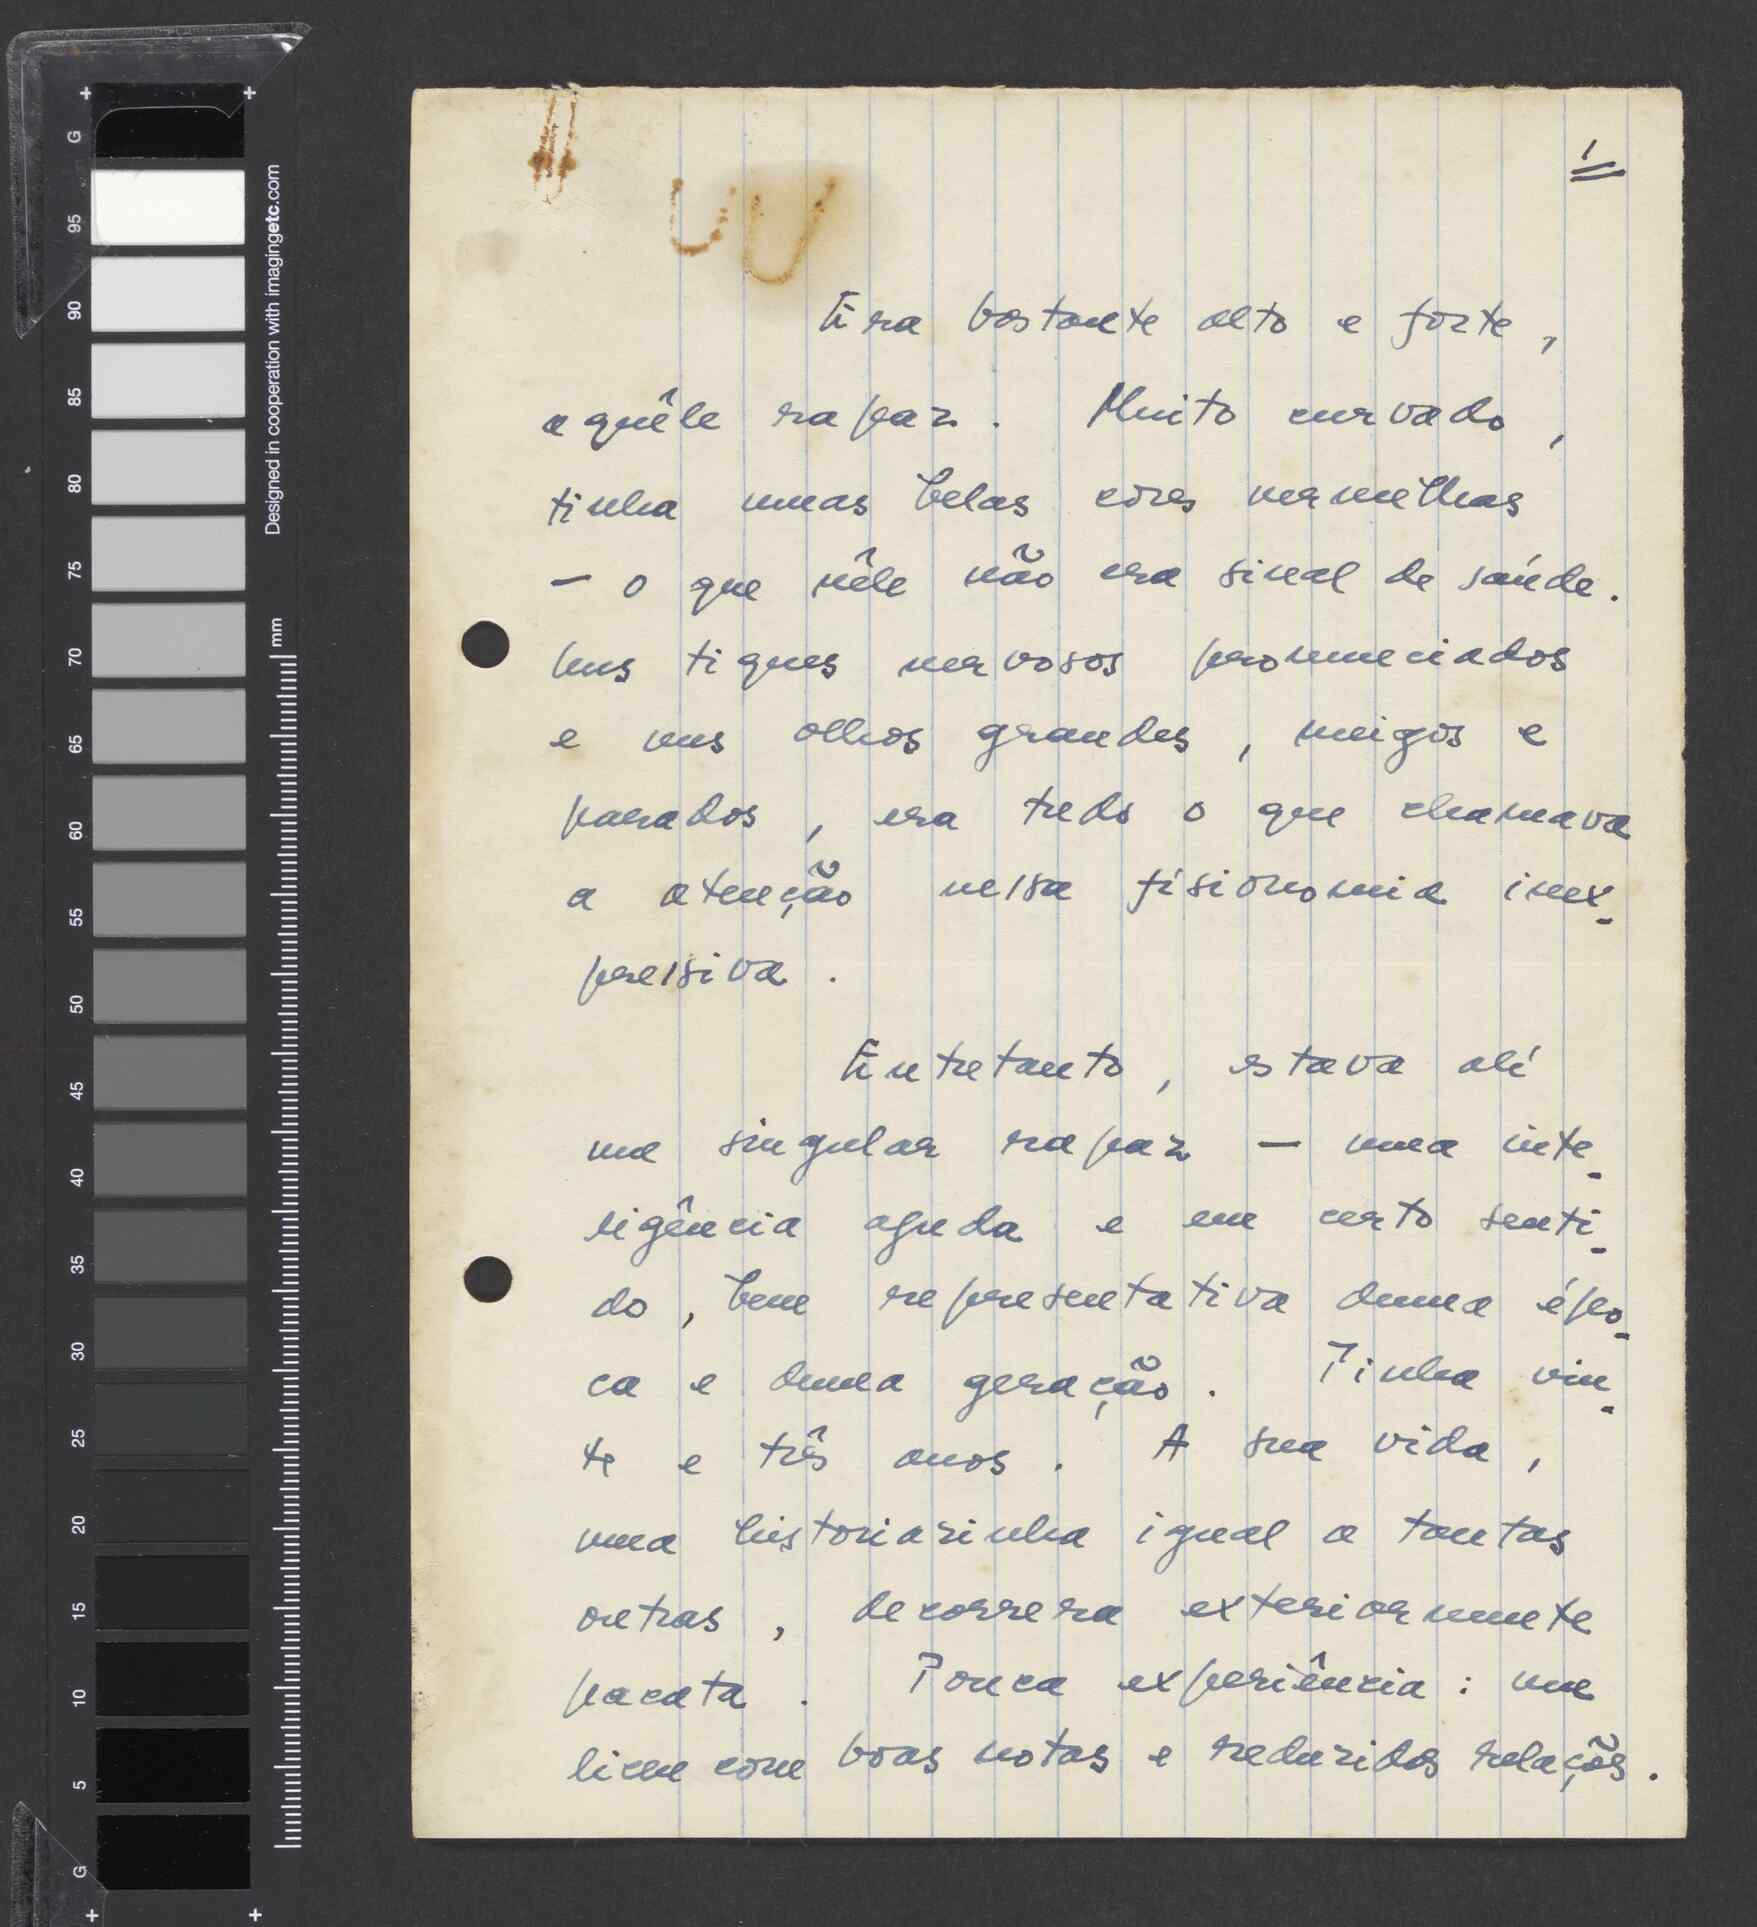 1
Era bastante alto e forte,
aquêle rapaz. Muito curvado,
tinha umas belas côres vermelhas
— o que nêle não era sinal de saúde.
Uns tiques nervosos pronunciados
e uns olhos grandes, meigos e
parados, era tudo o que chamava
a atenção nessa fisionomia inex-
pressiva.
Entretanto, estava alí
um singular rapaz — uma inte-
ligência aguda e em certo senti-
do, bem representativa duma épo-
ca e duma geração. Tinha vin-
te e três anos. A sua vida,
uma historiazinha igual a tantas
outras, decorrera exteriormente
pacata. Pouca experiência: um
liceu com boas notas e reduzidas relações.
G
95
90
85
80
75
70
65
60
55
50
45
40
35
30
25
20
15
10
5
G
Designed in cooperation with imagingetc.com
mm